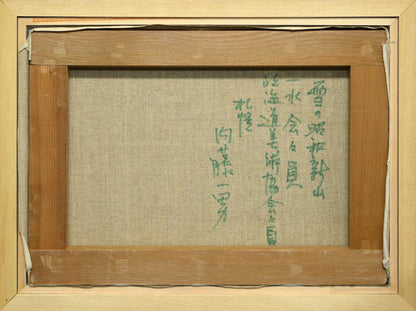 雪の昭和新山
一水会々員
北海道美術協会々員
札幌
内藤一男